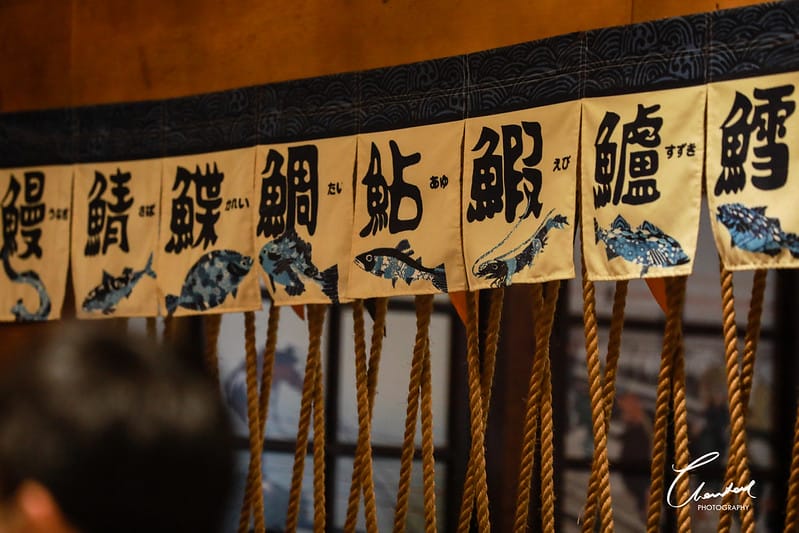 鰻 うなぎ
鯖 さば
鰈 かれい
鯛 たい
鮎 あゆ
鰕 えび
鱸 すずき
鱈
Chandler
PHOTOGRAPHY